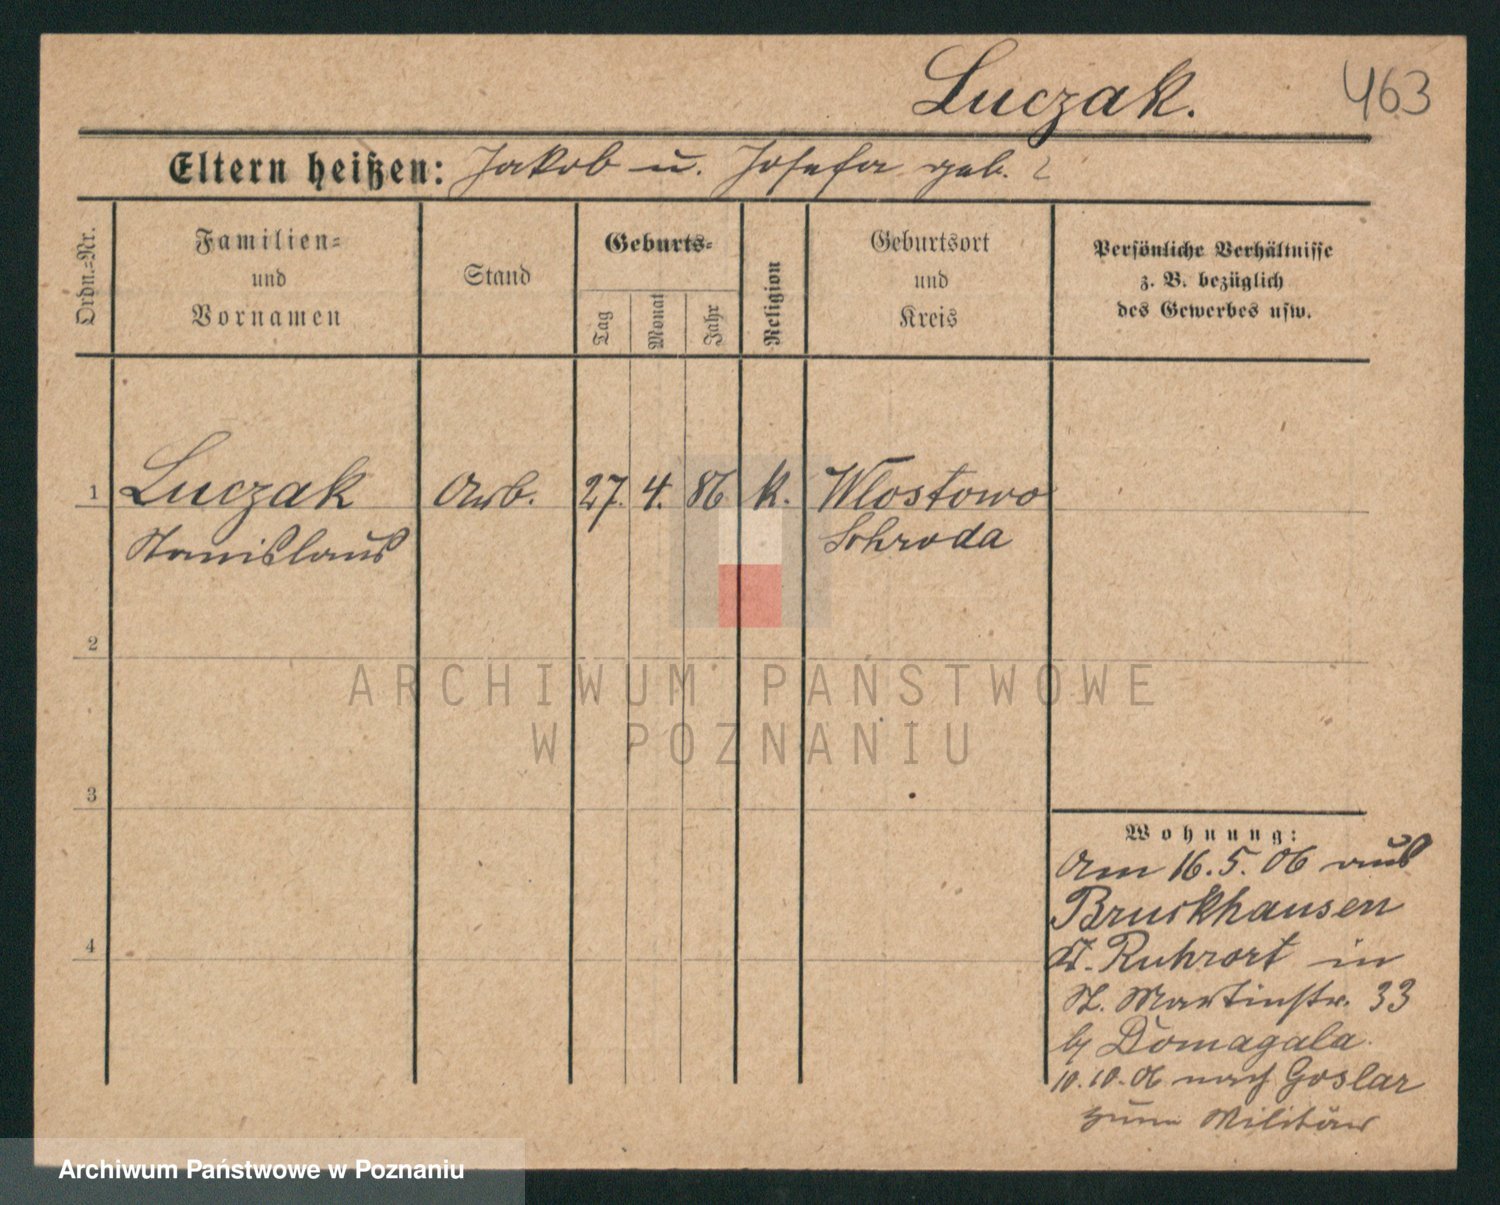 Luczak.
463
Eltern heißen: Jakob u. Josefa geb. ?
Ordn.=Nr.
Familien=
und
Vornamen
Stand
Geburts=
Tag
Monat
Jahr
Religion
Geburtsort
und
Kreis
Persönliche Verhältnisse
z. B. bezüglich
des Gewerbes usw.
1
Luczak
Stanislaus
Arb.
27. 4. 86
k.
Wlostowo
Schroda
2
3
4
Wohnung:
Am 16.5.06 aus
Bruckhausen
K. Ruhrort in
St. Martinstr. 33
by Domagala.
10.10.06 nach Goslar
zum Militär
ARCHIWUM PAŃSTWOWE
W POZNANIU
Archiwum Państwowe w Poznaniu